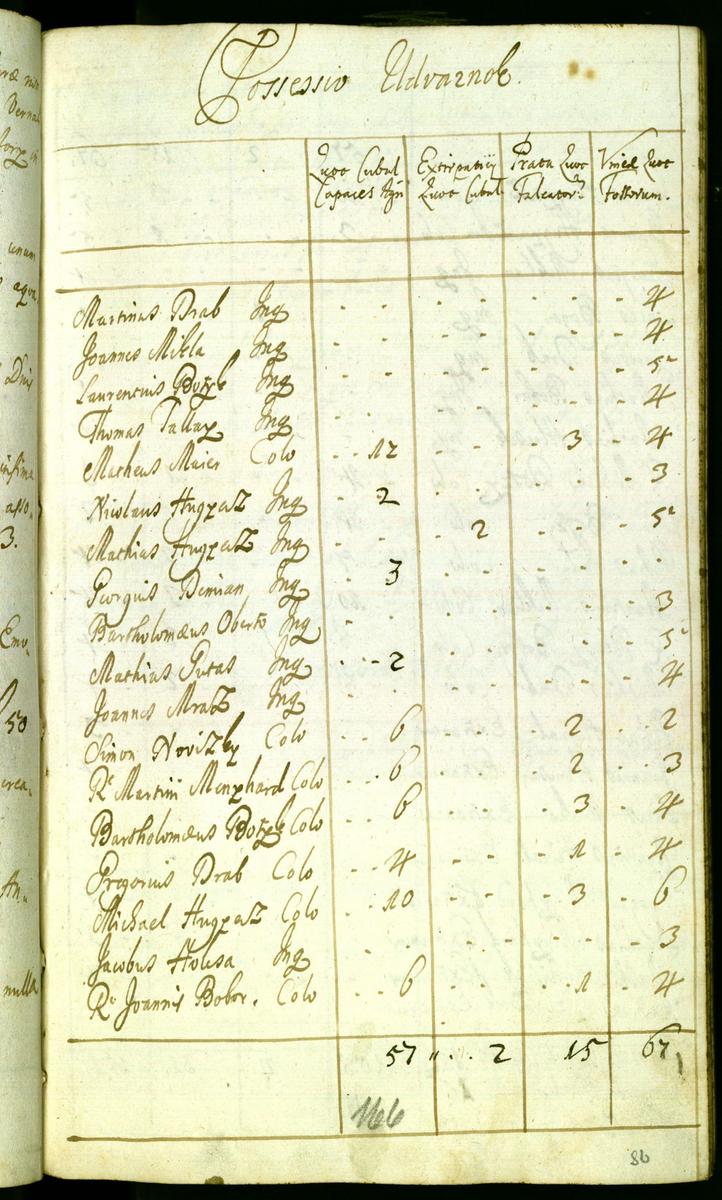 Possessio Udvarnok.
Quot Cubul Capaces Agri
Extirpatiy Quot Cubul
Prata Quot Falcator
Vinea Quot Fossorum.
Martinus Drab Inq . . . . . . . 4
Joannes Mikla Inq . . . . . . . 4
Laurentius Inq . . . . . . . 5
Thomas Inq . . . . . . . 4
Matheus Maier Colo . . 12 . . . 3 . 4
Nicolaus Hugyetz Inq . 2 . . . . . 3
Mathias Hugyetz Inq . . . 2 . . . 5
Georgius Demian Inq . . 3 . . . . . .
Bartholomæus Oberto Inq . . . . . . . 3
Mathias Putas Inq . . 2 . . . . . 5
Joannes Mratz Inq . . . . . . . 4
Simon Novitzky Colo . . 6 . . . 2 . . 2
Rta Martini Menyhard Colo . . 6 . . . 2 . . 3
Bartholomæus Colo . . 6 . . . 3 . . 4
Gregorius Drab Colo . . 4 . . . 1 . . 4
Michael Hugyetz Colo . . 10 . . . 3 . . 6
Jacobus Holisa Inq . . . . . . . . 3
Rta Joannis Bobor. Colo . . 6 . . . 1 . . 4
57 . . . 2 15 67
166
86